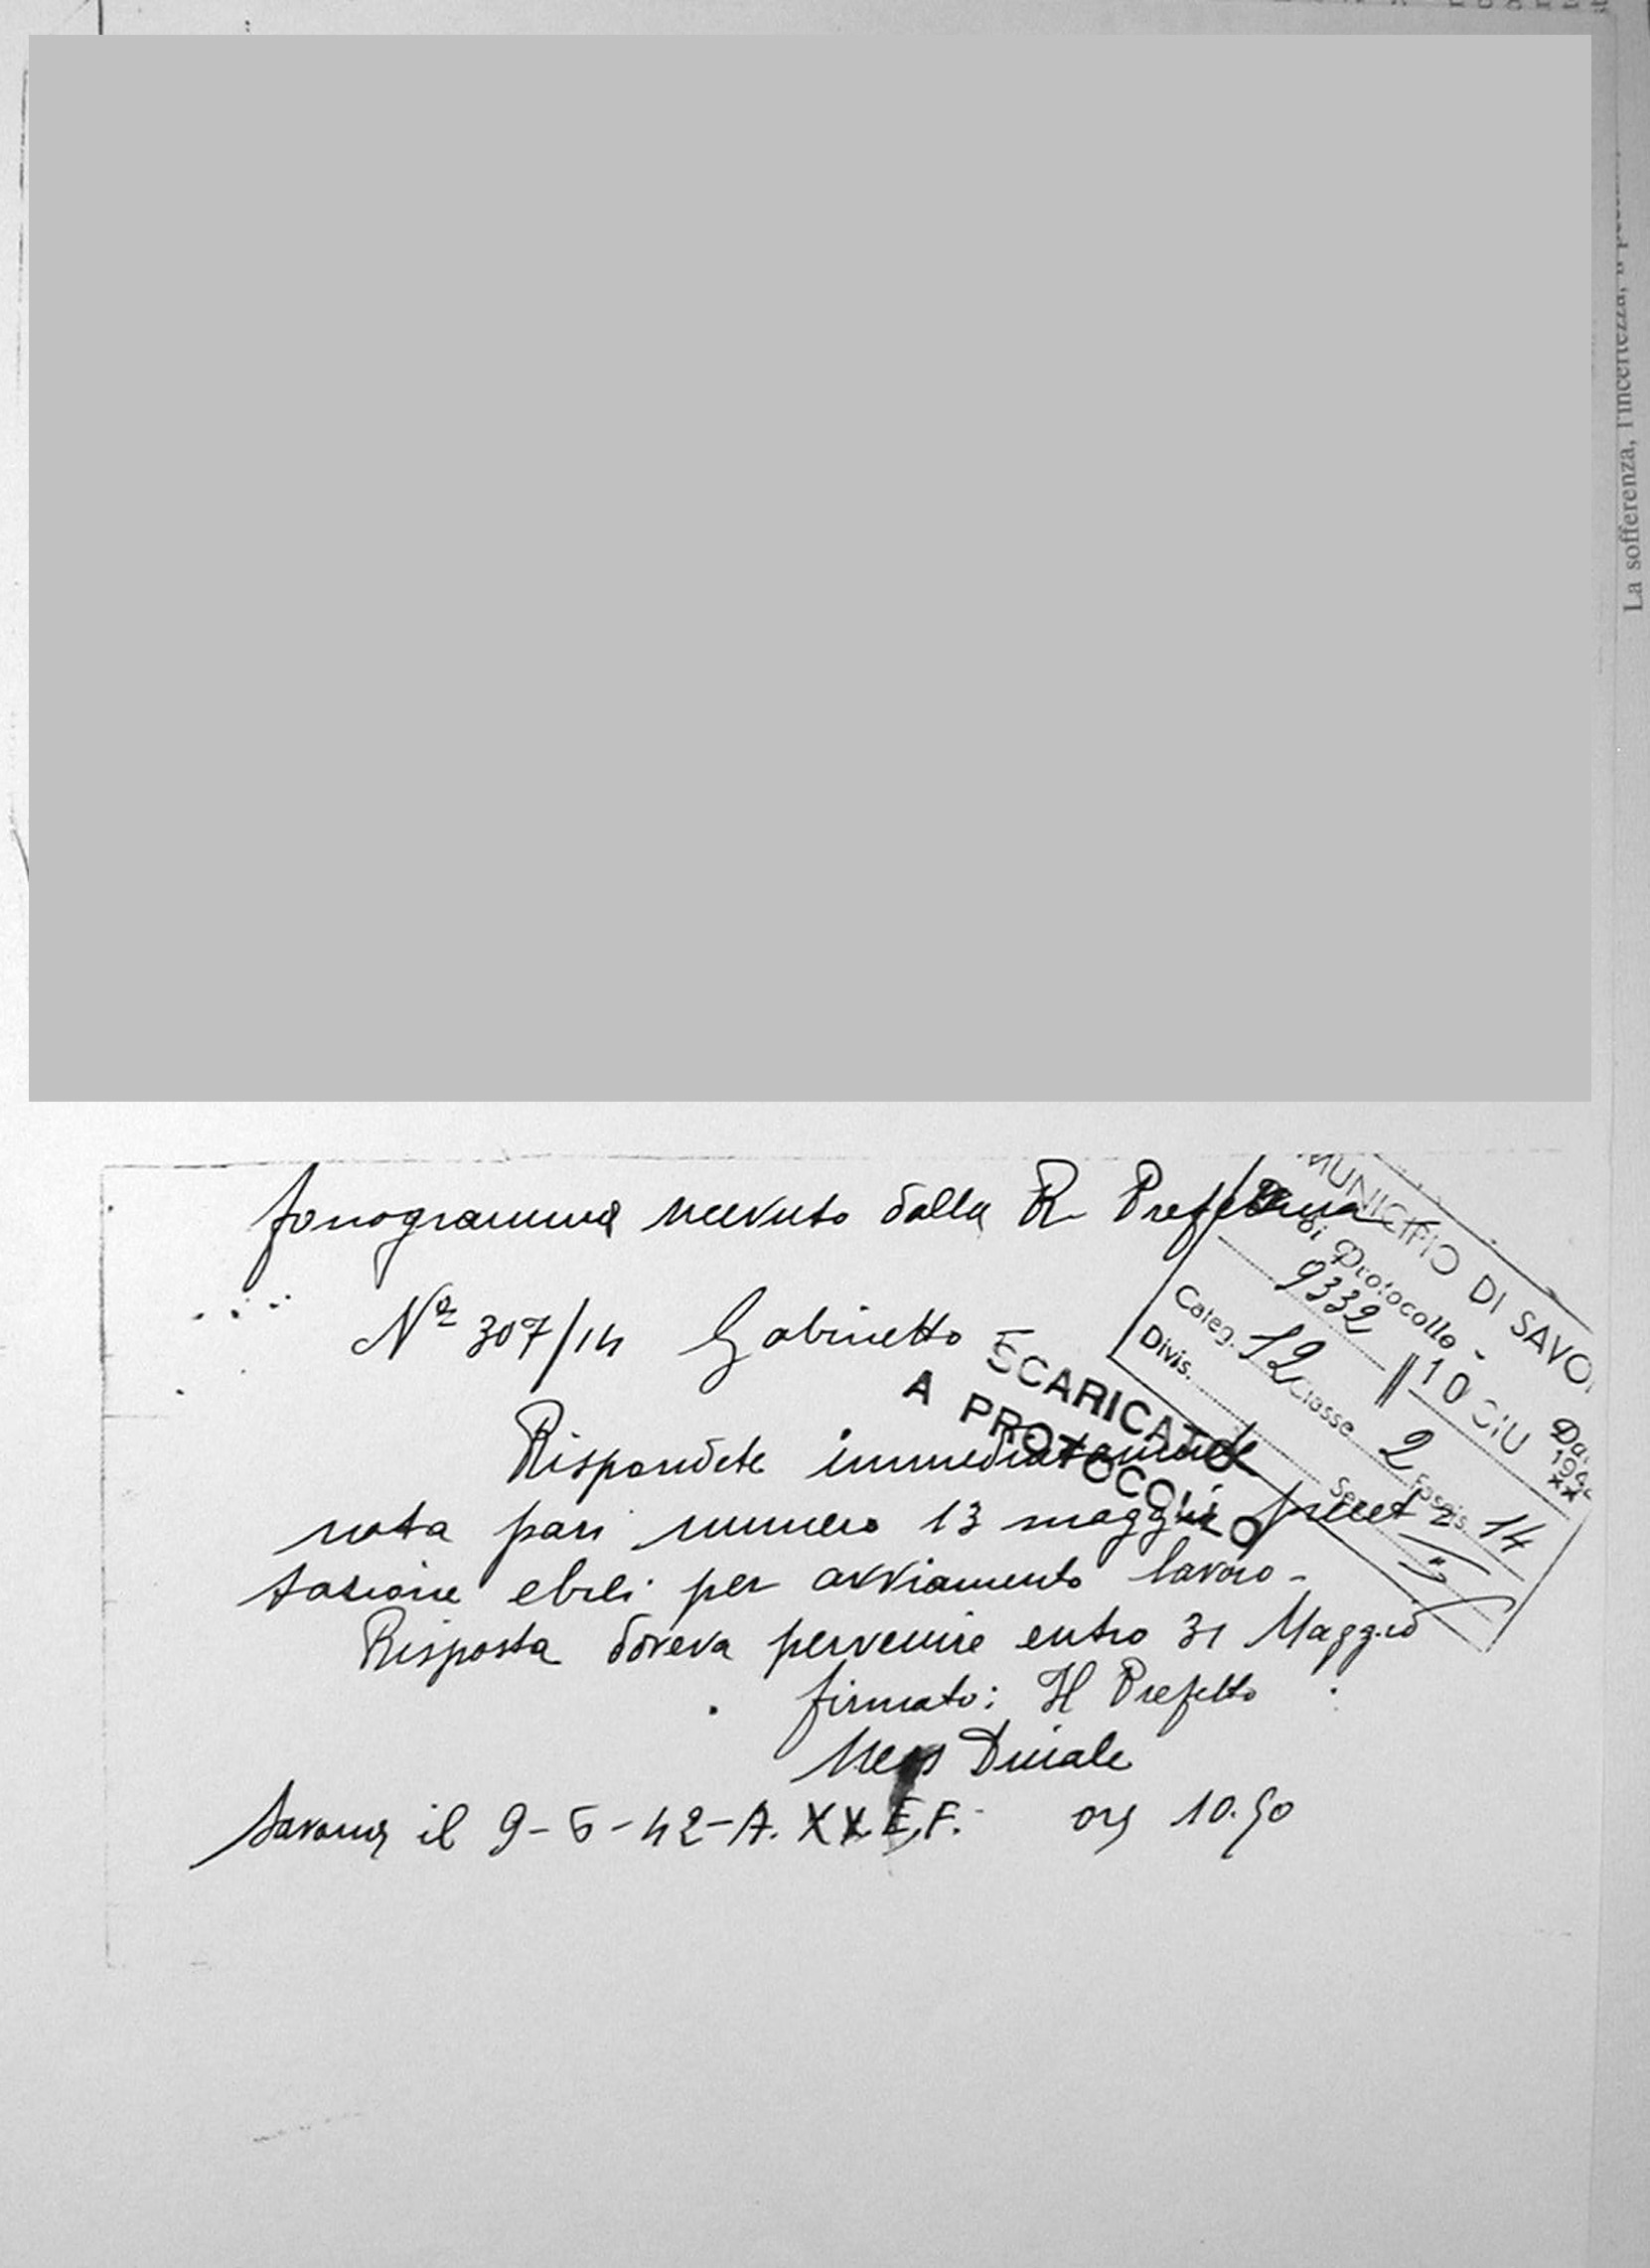 La sofferenza, l'incertezza, il
fonogramma ricevuto dalla R. Prefettura
Nº 307/14 Gabinetto
Rispondete immediatamente
nota pari numero 13 maggio precet
tazione ebrei per avviamento lavoro -
Risposta doveva pervenire entro 31 Maggio
firmato: Il Prefetto
Dinale
Savona il 9-6-42-A. XX E.F. ore 10.50
SCARICATO
A PROTOCOLLO
MUNICIPIO DI SAVO
di Protocollo
9332 10 GIU 194 XX
Categ. 12 Classe 2 Fascis 14
Divis.